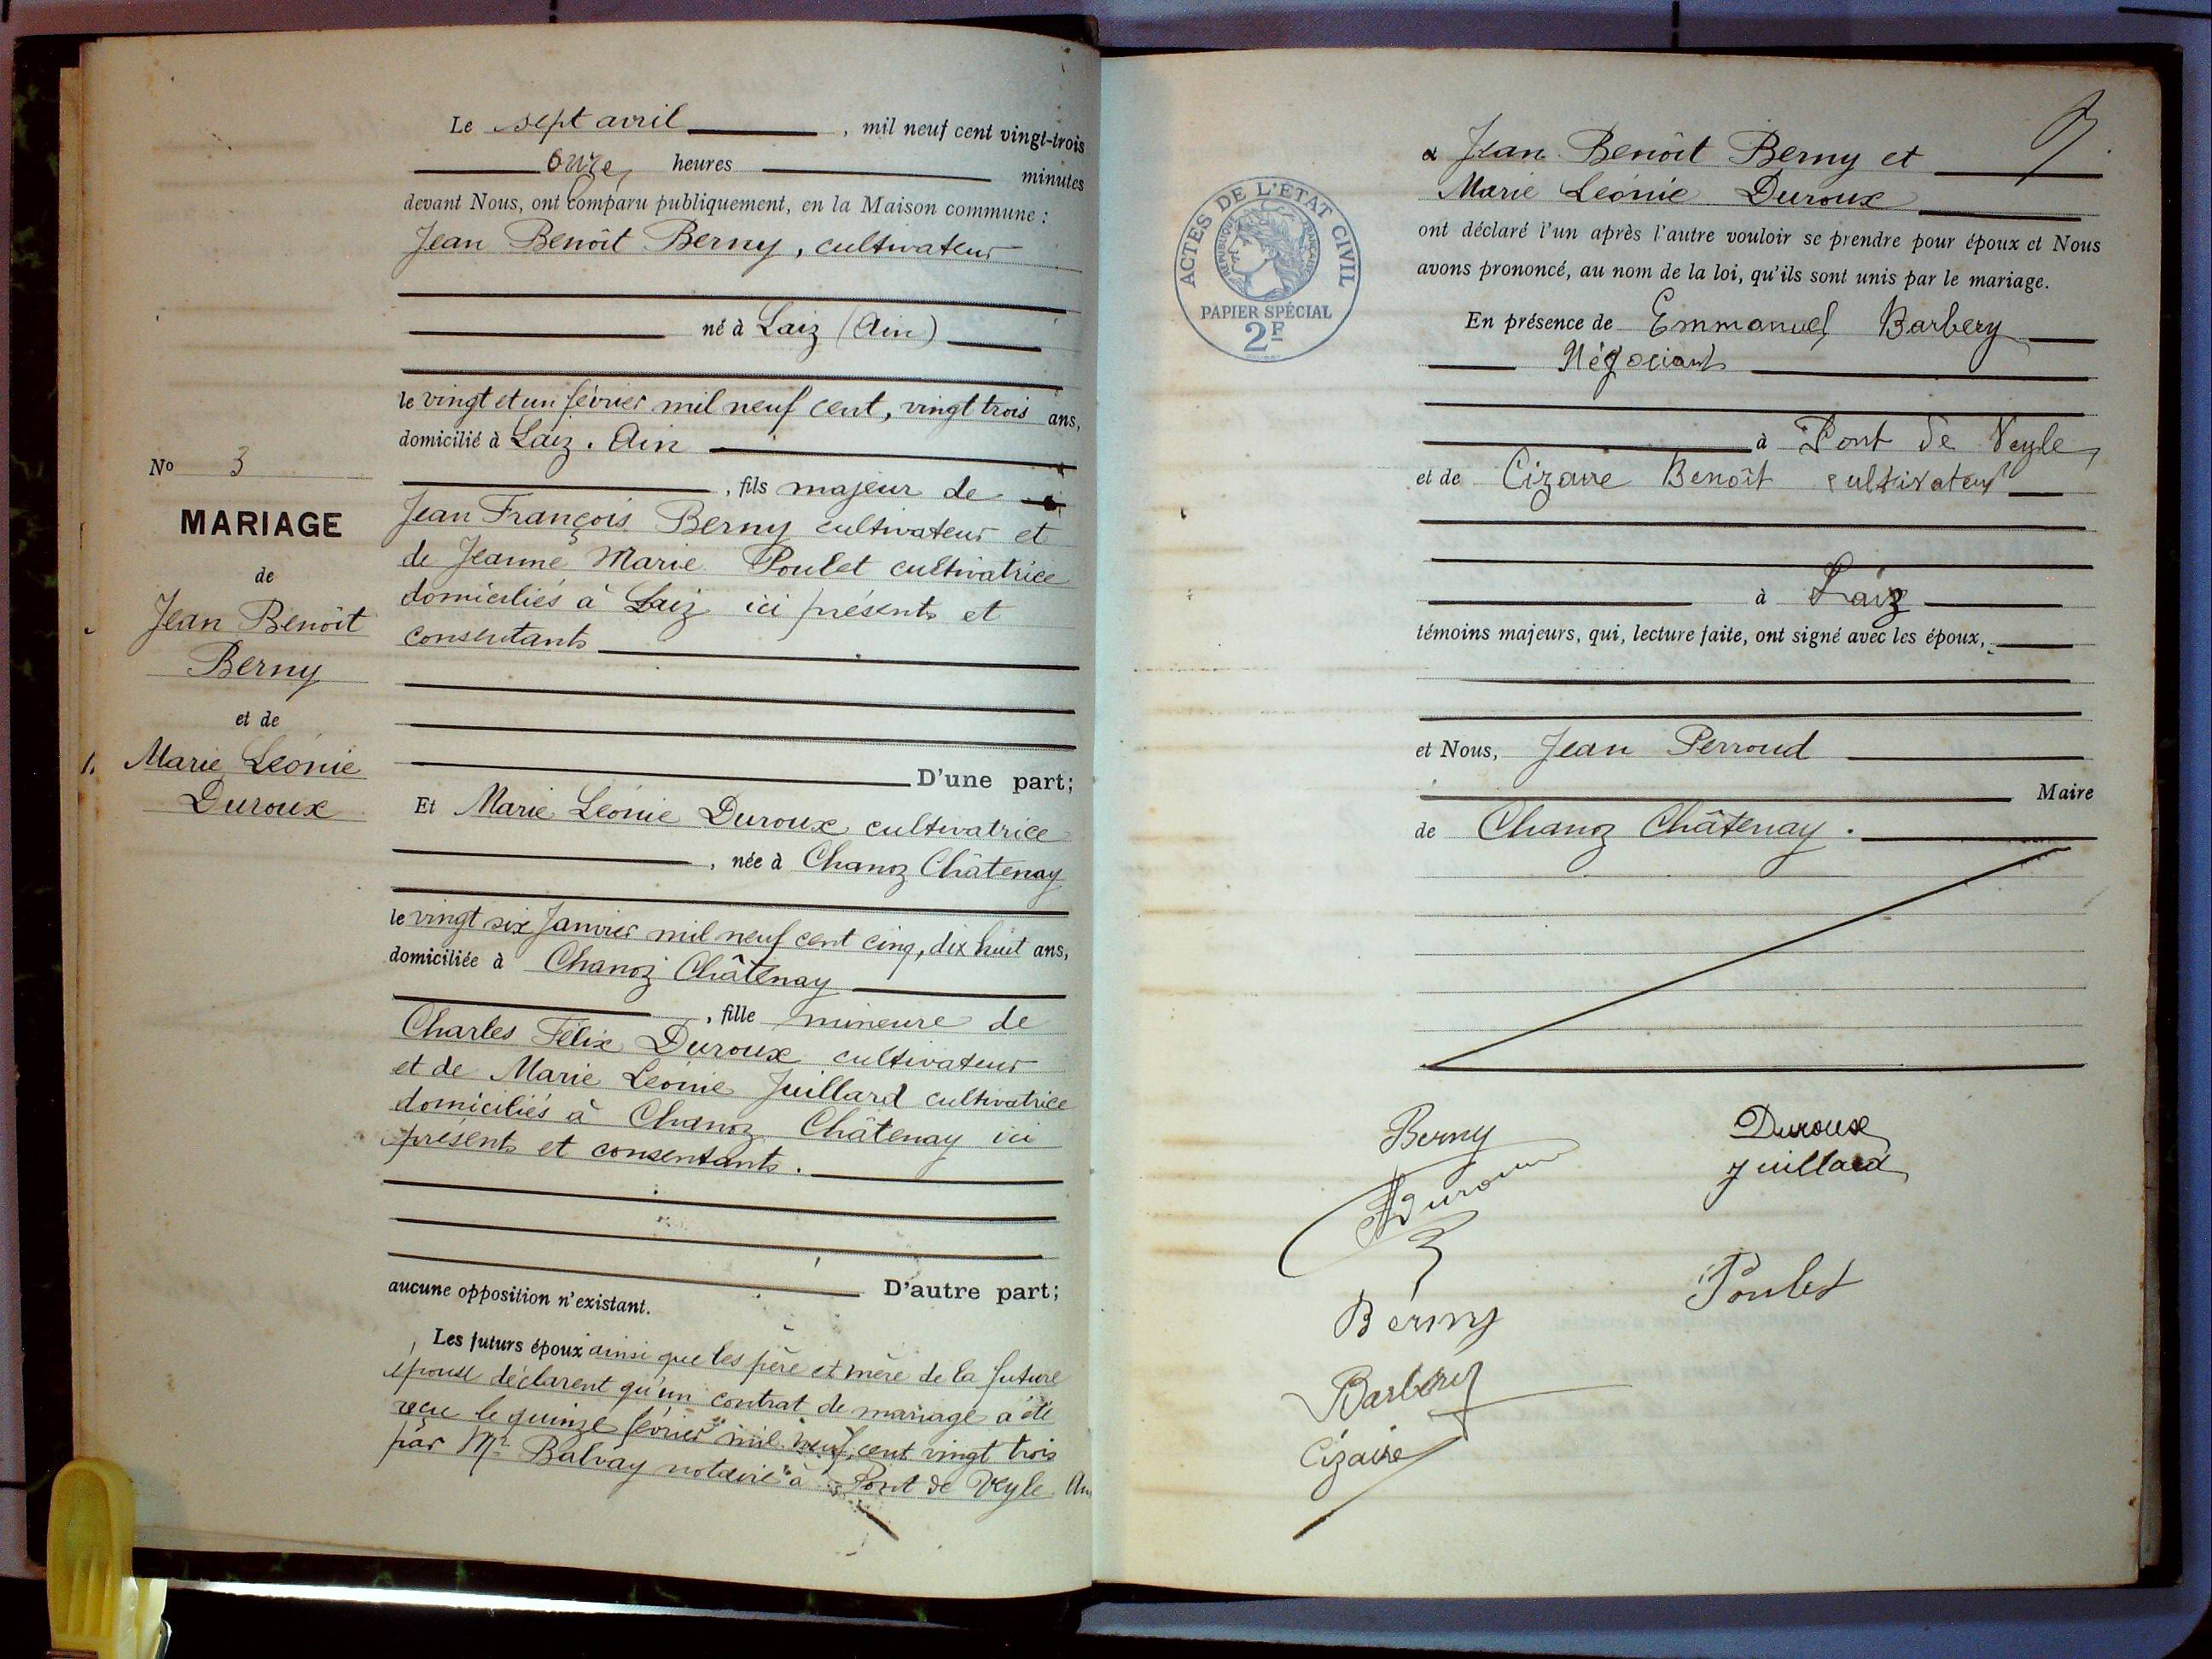 Le sept avril, mil neuf cent vingt-trois
onze heures minutes
devant Nous, ont comparu publiquement, en la Maison commune :
Jean Benoît Berny, cultivateur
né à Laiz (Ain)
le vingt et un février mil neuf cent, vingt trois ans,
domicilié à Laiz. Ain
, fils majeur de
Jean François Berny cultivateur et
de Jeanne Marie Poulet cultivatrice
domiciliés à Laiz ici présents et
consentants
D'une part;
Et Marie Léonie Duroux cultivatrice
, née à Chanoz Châtenay
le vingt six Janvier mil neuf cent cinq, dix huit ans,
domiciliée à Chanoz Châtenay
, fille mineure de
Charles Félix Duroux cultivateur
et de Marie Léonie Juillard cultivatrice
domiciliés à Chanoz Châtenay ici
présents et consentants.
D'autre part;
aucune opposition n'existant.
Les futurs époux ainsi que les père et mère de la future
épouse déclarent qu'un contrat de mariage a été
reçu le quinze février mil neuf cent vingt trois
par Mr Balvay notaire à Pont de Veyle
No 3
MARIAGE
de
Jean Benoît
Berny
et de
1. Marie Léonie
Duroux
Jean Benoît Berny et
Marie Léonie Duroux
ont déclaré l'un après l'autre vouloir se prendre pour époux et Nous
avons prononcé, au nom de la loi, qu'ils sont unis par le mariage.
En présence de Emmanuel Barbery
Négociant
à Pont de Veyle
et de Cizaire Benoît cultivateur
à Laiz
témoins majeurs, qui, lecture faite, ont signé avec les époux,
et Nous, Jean Perroud
Maire
de Chanoz Châtenay.
ACTES DE L'ETAT CIVIL
REPUBLIQUE FRANÇAISE
PAPIER SPÉCIAL
2F
Berny
Duroux
Duroux
Juillard
Berny
Poulet
Barbery
Cizaire